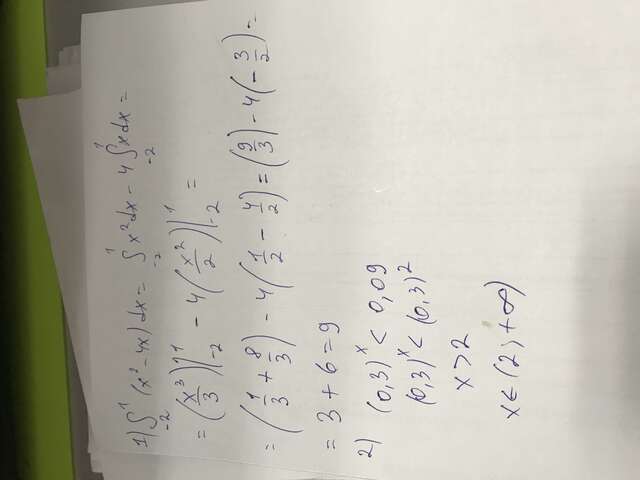 1) ∫₋₂¹ (x² - 4x) dx = ∫₋₂¹ x² dx - 4 ∫₋₂¹ x dx =
= (x³/3)|₋₂¹ - 4 (x²/2)|₋₂¹ =
= (1/3 + 8/3) - 4 (1/2 - 4/2) = (9/3) - 4 (- 3/2) =
= 3 + 6 = 9
2) (0,3)ˣ < 0,09
(0,3)ˣ < (0,3)²
x > 2
x ∈ (2; +∞)